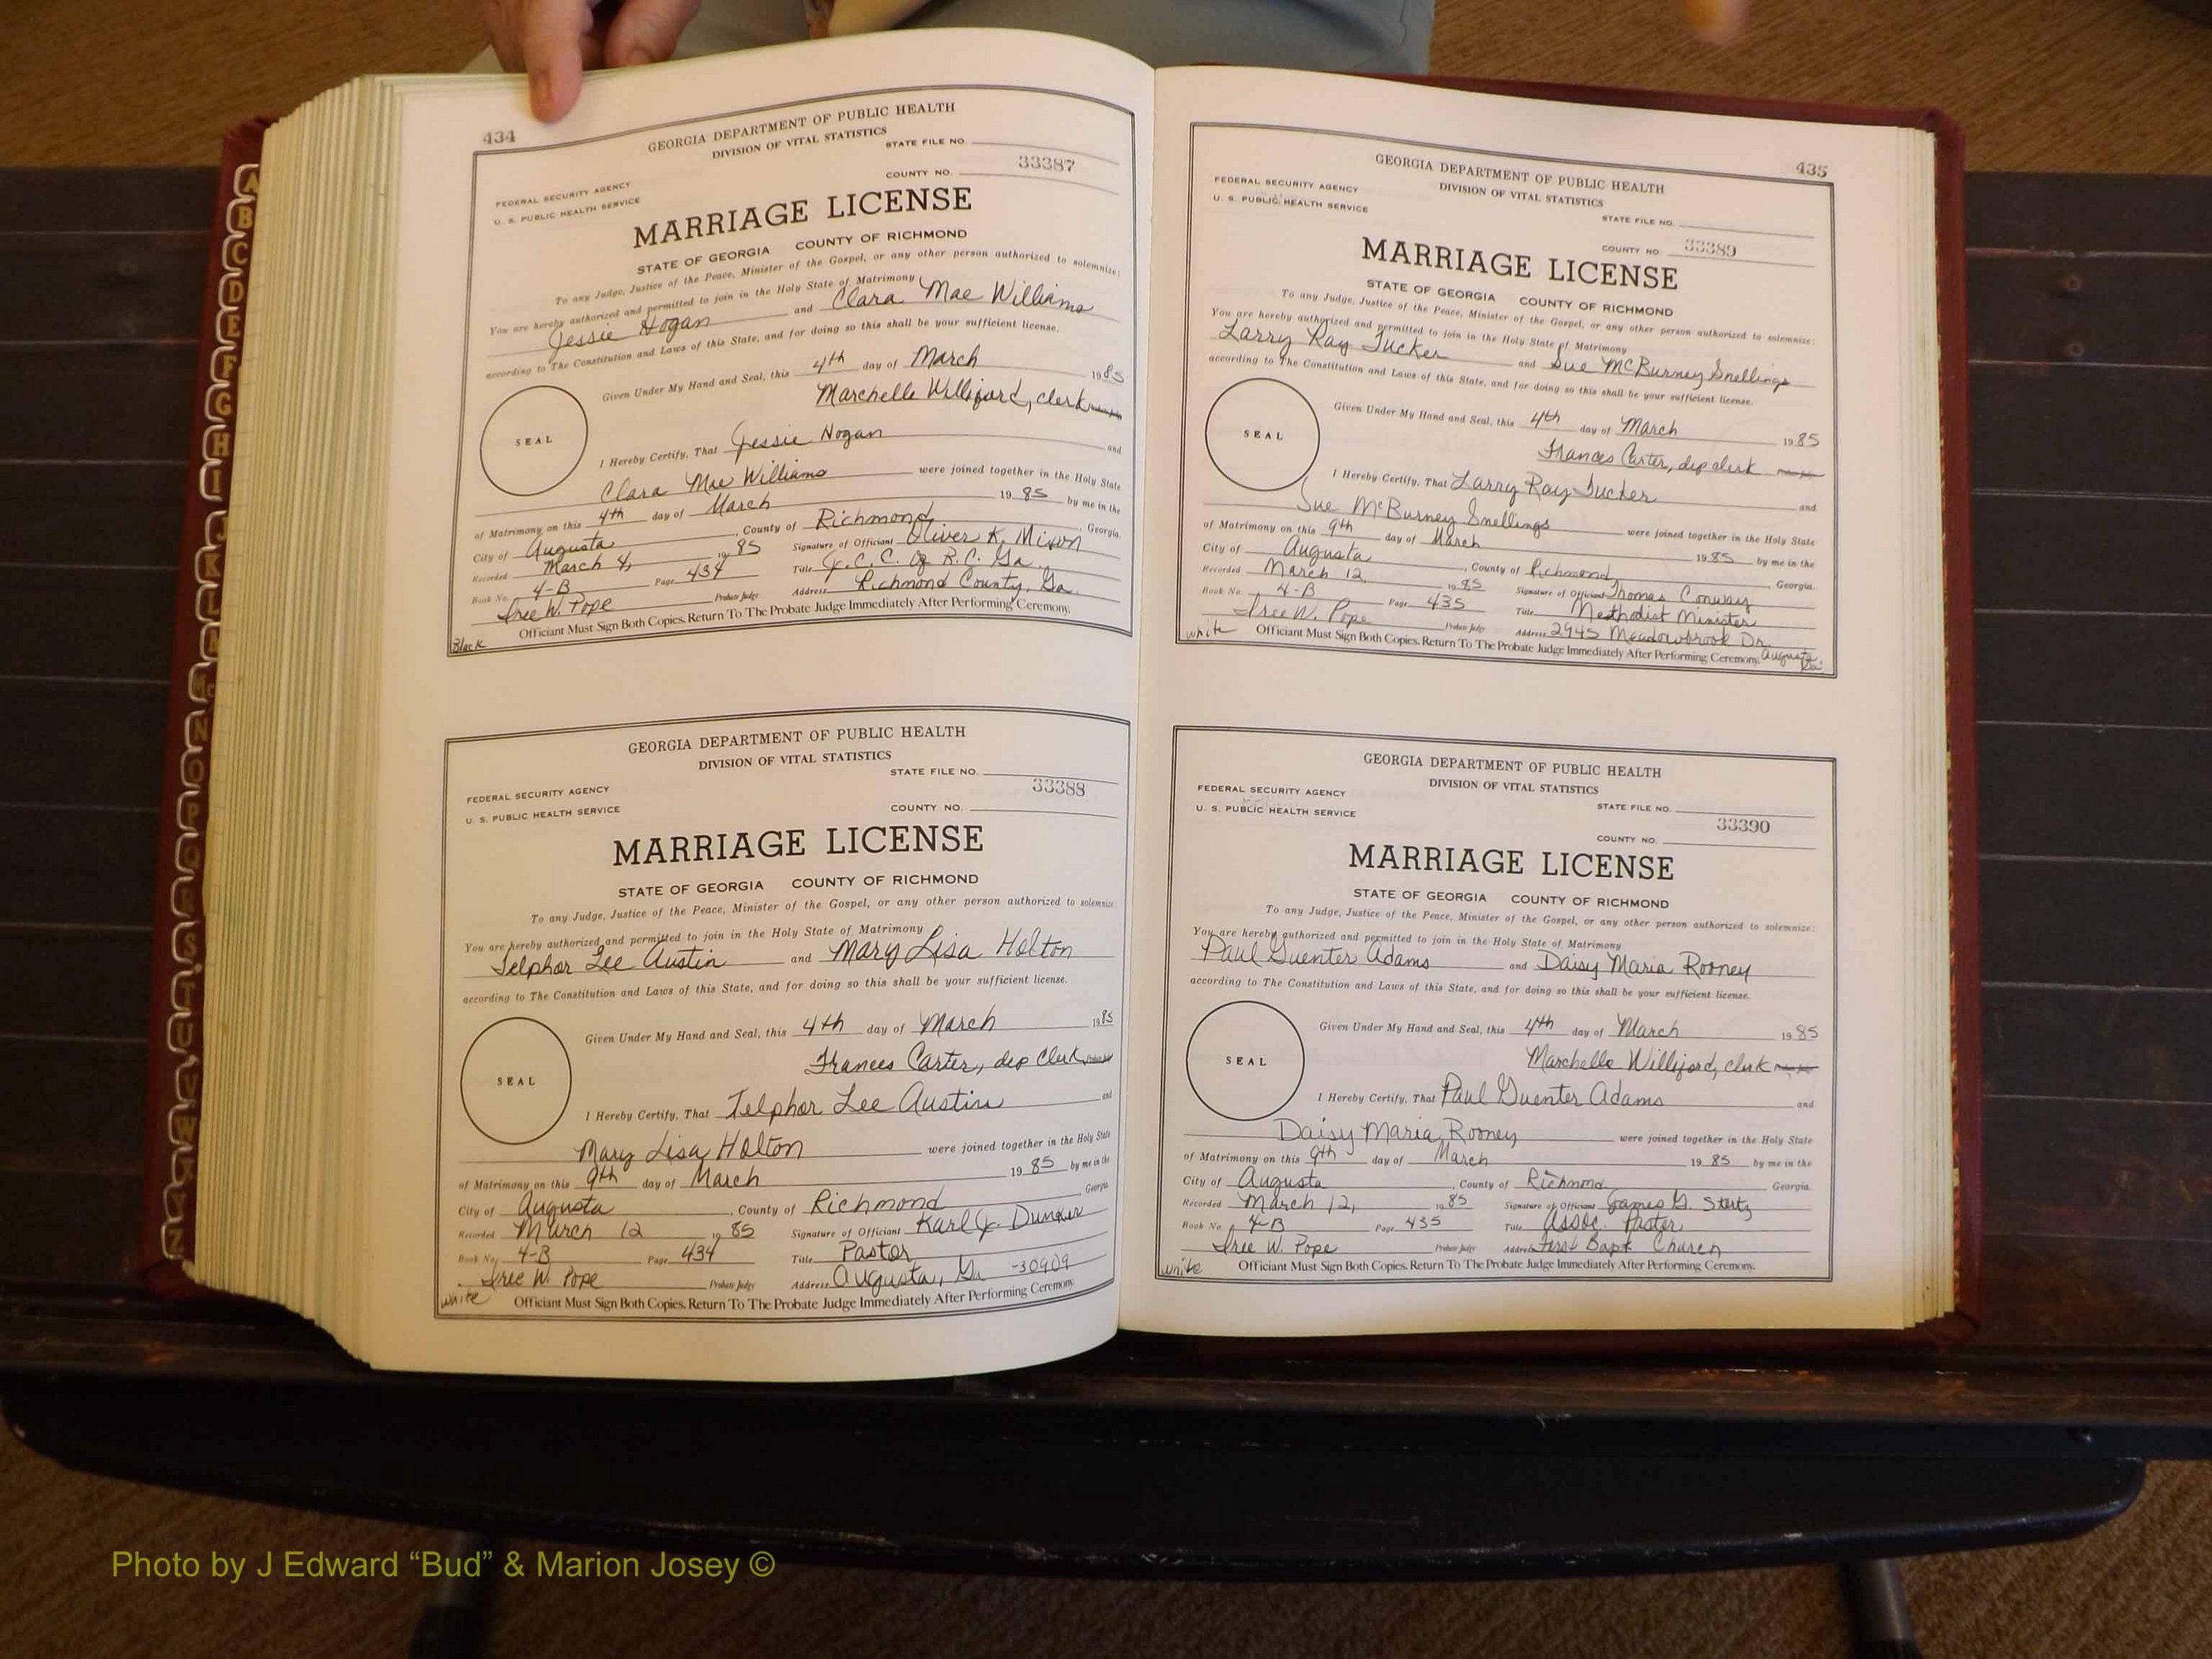 434
GEORGIA DEPARTMENT OF PUBLIC HEALTH
DIVISION OF VITAL STATISTICS
STATE FILE NO.
33387
COUNTY NO.
FEDERAL SECURITY AGENCY
U. S. PUBLIC HEALTH SERVICE
MARRIAGE LICENSE
STATE OF GEORGIA COUNTY OF RICHMOND
To any Judge, Justice of the Peace, Minister of the Gospel, or any other person authorized to solemnize:
You are hereby authorized and permitted to join in the Holy State of Matrimony
Jessie Hogan and Clara Mae Williams
according to The Constitution and Laws of this State, and for doing so this shall be your sufficient license.
Given Under My Hand and Seal, this 4th day of March 1985
Marchelle Williford, clerk
SEAL
I Hereby Certify, That Jessie Hogan and
Clara Mae Williams were joined together in the Holy State
of Matrimony on this 4th day of March 1985 by me in the
City of Augusta, County of Richmond, Georgia.
Recorded March 4, 1985 Signature of Officiant Oliver K. Mixon
Book No. 4-B Page 434 Title J.C.C. Of R.C. Ga.
Iree W. Pope Probate Judge Address Richmond County, Ga.
Officiant Must Sign Both Copies. Return To The Probate Judge Immediately After Performing Ceremony.
Black
GEORGIA DEPARTMENT OF PUBLIC HEALTH
DIVISION OF VITAL STATISTICS
STATE FILE NO.
33388
FEDERAL SECURITY AGENCY
U. S. PUBLIC HEALTH SERVICE
COUNTY NO.
MARRIAGE LICENSE
STATE OF GEORGIA COUNTY OF RICHMOND
To any Judge, Justice of the Peace, Minister of the Gospel, or any other person authorized to solemnize:
You are hereby authorized and permitted to join in the Holy State of Matrimony
Telphor Lee Austin and Mary Lisa Holton
according to The Constitution and Laws of this State, and for doing so this shall be your sufficient license.
Given Under My Hand and Seal, this 4th day of March 1985
Frances Carter, dep clerk
SEAL
I Hereby Certify, That Telphor Lee Austin and
Mary Lisa Holton were joined together in the Holy State
of Matrimony on this 9th day of March 1985 by me in the
City of Augusta, County of Richmond, Georgia
Recorded March 12 1985 Signature of Officiant Karl J. Dunker
Book No. 4-B Page 434 Title Pastor
Iree W. Pope Probate Judge Address Augusta, Ga -30909
white Officiant Must Sign Both Copies. Return To The Probate Judge Immediately After Performing Ceremony.
435
GEORGIA DEPARTMENT OF PUBLIC HEALTH
DIVISION OF VITAL STATISTICS
FEDERAL SECURITY AGENCY
U. S. PUBLIC HEALTH SERVICE
STATE FILE NO.
COUNTY NO. 33389
MARRIAGE LICENSE
STATE OF GEORGIA COUNTY OF RICHMOND
To any Judge, Justice of the Peace, Minister of the Gospel, or any other person authorized to solemnize:
You are hereby authorized and permitted to join in the Holy State of Matrimony
Larry Ray Tucker and Sue McBurney Snellings
according to The Constitution and Laws of this State, and for doing so this shall be your sufficient license.
Given Under My Hand and Seal, this 4th day of March 1985
Frances Carter, dep clerk
SEAL
I Hereby Certify, That Larry Ray Tucker and
Sue McBurney Snellings were joined together in the Holy State
of Matrimony on this 9th day of March 1985 by me in the
City of Augusta, County of Richmond, Georgia.
Recorded March 12, 1985 Signature of Officiant Thomas Conway
Book No. 4-B Page 435 Title Methodist Minister
Iree W. Pope Probate Judge Address 2945 Meadowbrook Dr. Augusta Ga.
white Officiant Must Sign Both Copies. Return To The Probate Judge Immediately After Performing Ceremony.
GEORGIA DEPARTMENT OF PUBLIC HEALTH
DIVISION OF VITAL STATISTICS
FEDERAL SECURITY AGENCY
U. S. PUBLIC HEALTH SERVICE
STATE FILE NO.
33390
COUNTY NO.
MARRIAGE LICENSE
STATE OF GEORGIA COUNTY OF RICHMOND
To any Judge, Justice of the Peace, Minister of the Gospel, or any other person authorized to solemnize:
You are hereby authorized and permitted to join in the Holy State of Matrimony
Paul Guenter Adams and Daisy Maria Rooney
according to The Constitution and Laws of this State, and for doing so this shall be your sufficient license.
Given Under My Hand and Seal, this 4th day of March 1985
Marchelle Williford, clerk
SEAL
I Hereby Certify, That Paul Guenter Adams and
Daisy Maria Rooney were joined together in the Holy State
of Matrimony on this 9th day of March 1985 by me in the
City of Augusta, County of Richmond Georgia.
Recorded March 12, 1985 Signature of Officiant James G. Stertz
Book No. 4-B Page 435 Title Assoc. Pastor
Iree W. Pope Probate Judge Address First Bapt Church
white Officiant Must Sign Both Copies. Return To The Probate Judge Immediately After Performing Ceremony.
Photo by J Edward “Bud” & Marion Josey ©